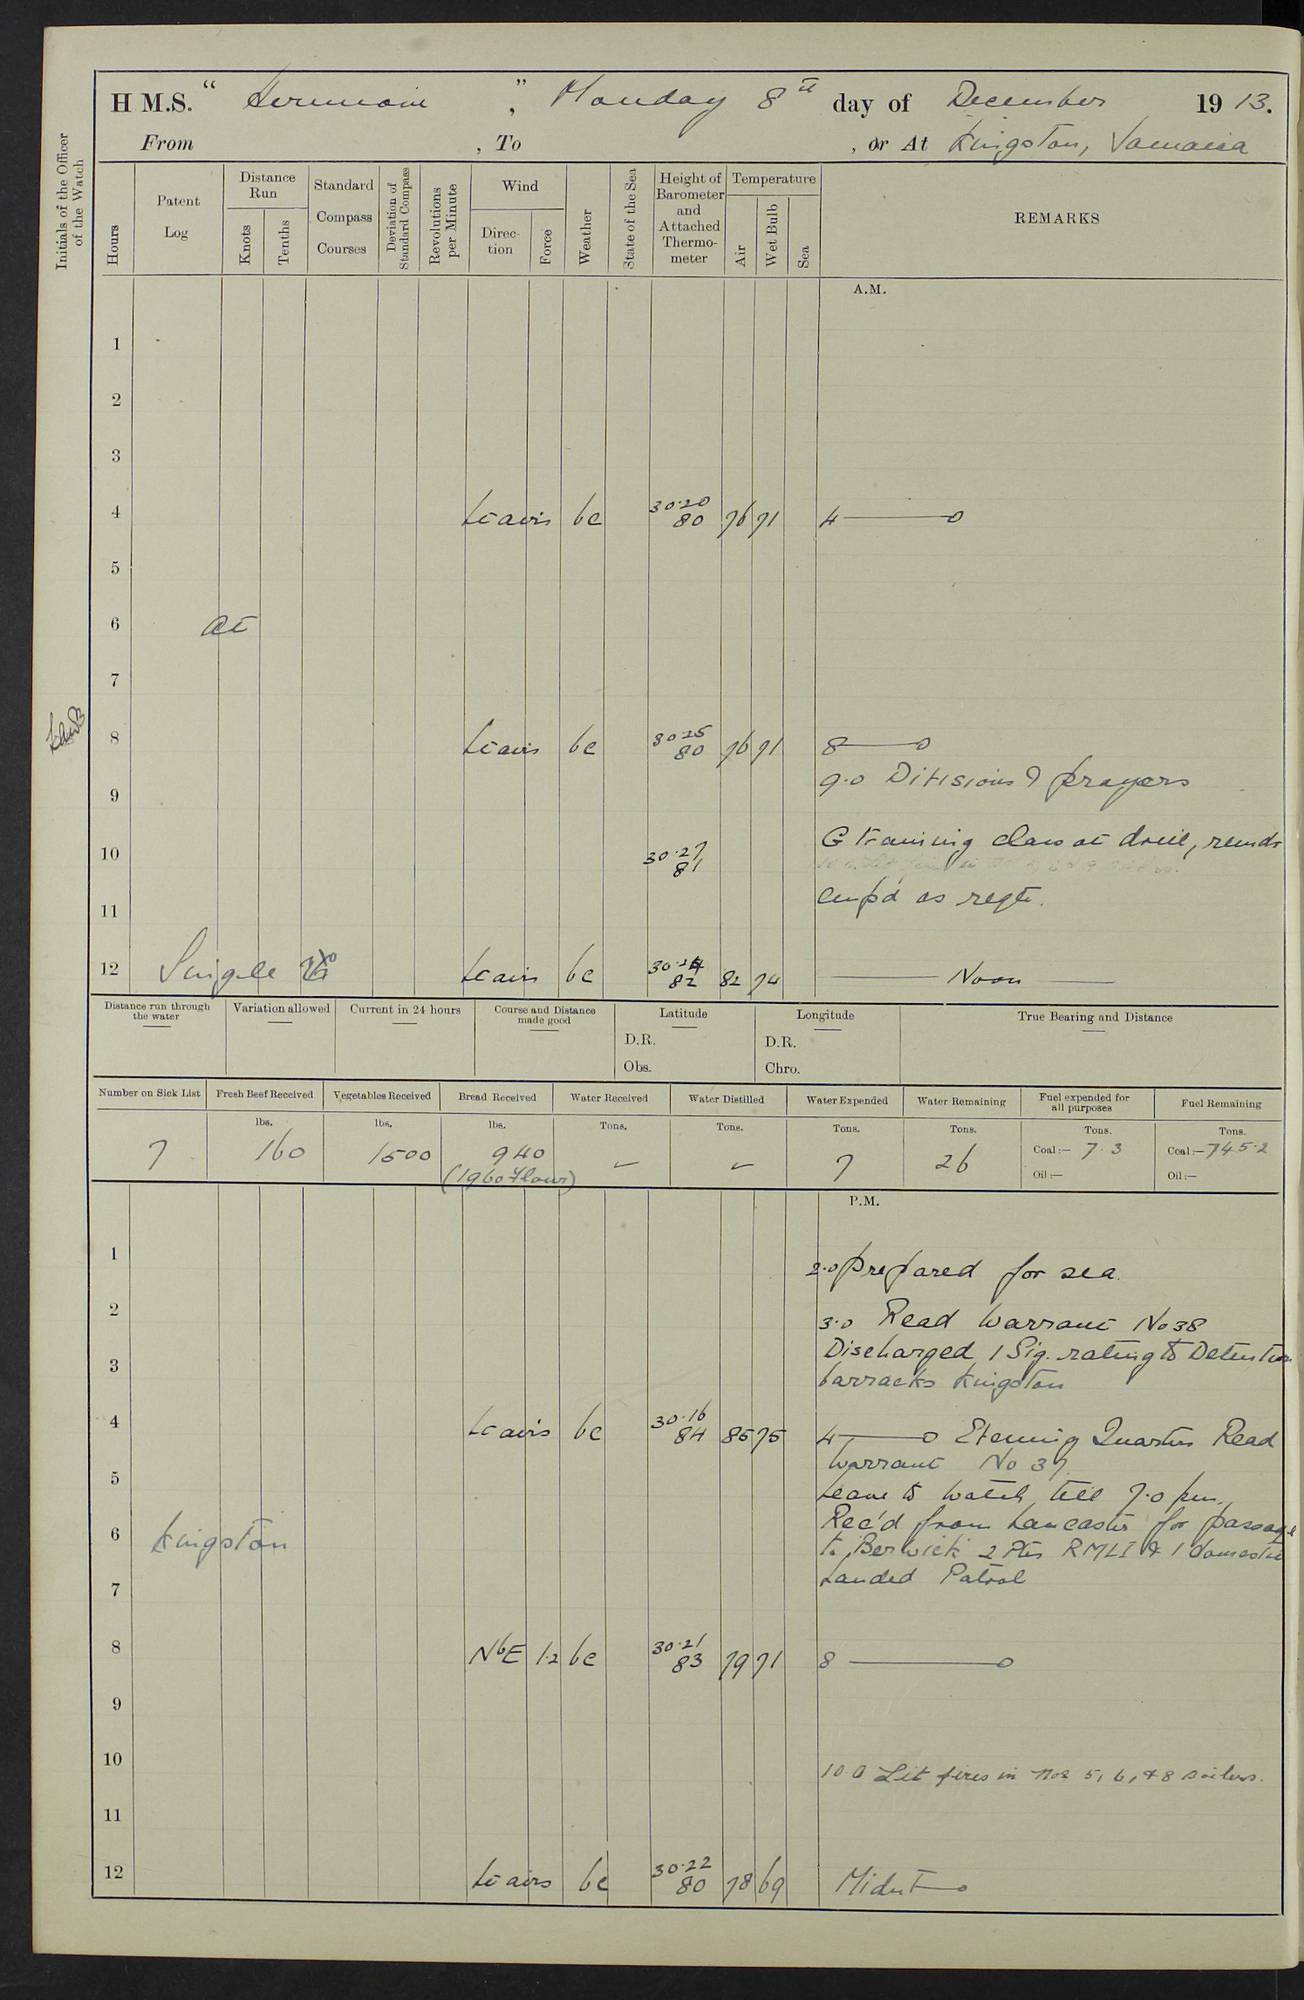 H M.S. " Hermione ", Monday 8th day of December 1913.
From , To , or At Kingston, Jamaica
Initials of the Officer of the Watch
Hours
Patent Log
Distance Run
Knots
Tenths
Standard Compass Courses
Deviation of Standard Compass
Revolutions per Minute
Wind
Direction
Force
Weather
State of the Sea
Height of Barometer and Attached Thermometer
Temperature
Air
Wet Bulb
Sea
REMARKS
A.M.
1
2
3
4 Lt airs bc 30.20 80 76 71 4
5
6 At
7
8 Lt airs bc 30.25 80 76 71 8
9.0 Divisions & prayers
9
10 30.27 81 G training class at drill, remdr
emp'd as reqte.
11
12 Single Lt airs bc 30.24 82 82 74 Noon
Distance run through the water
Variation allowed
Current in 24 hours
Course and Distance made good
Latitude
D.R.
Obs.
Longitude
D.R.
Chro.
True Bearing and Distance
Number on Sick List
Fresh Beef Received
Vegetables Received
Bread Received
Water Received
Water Distilled
Water Expended
Water Remaining
Fuel expended for all purposes
Fuel Remaining
lbs. lbs. lbs. Tons. Tons. Tons. Tons. Tons. Tons.
7 160 1500 940 – – 7 26 Coal:– 7.3 Coal:–745.2
(1960 Flour) Oil:– Oil:–
P.M.
1
2.0 Prepared for sea.
2
3.0 Read Warrant No 38
Discharged 1 Sig. rating to Detention
3
barracks Kingston
4 Lt airs bc 30.16 84 85 75 4 Evening Quarters Read
Warrant No 37
5
Leave to watch till 7.0 pm.
6 Kingston Rec'd from Lancaster for passage
to Berwick 2 Ptes RMLI & 1 domestic
7 Landed Patrol
8 NbE 1.2 bc 30.21 83 79 71 8
9
10 10.0 Lit fires in Nos 5, 6, & 8 boilers.
11
12 Lt airs bc 30.22 80 78 69 Midnt